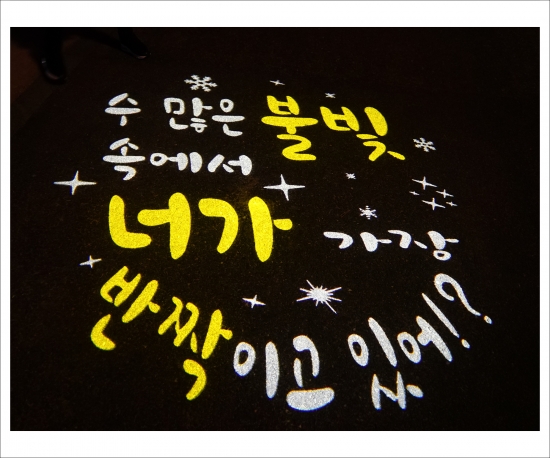 수 많은 불빛
속에서
너가 가장
반짝이고 있어!?